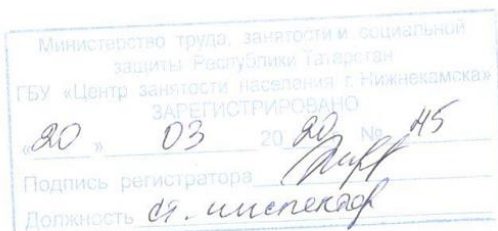 Министерство труда, занятости и социальной
защиты Республики Татарстан
ГБУ «Центр занятости населения г. Нижнекамска»
ЗАРЕГИСТРИРОВАНО
«20» 03 2020 № 45
Подпись регистратора
Должность ст. инспектор